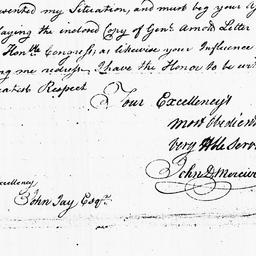 my Situation, and must beg your
laying the inclosed Copy of Genl. Arnold Letter
Honble Congress; as likewise your Influence
me redress, I have the Honor to be
Respect
Your Excellency's
most Obedient
very Hble Serv
John D. Mercier
Excellency
John Jay Esqr.